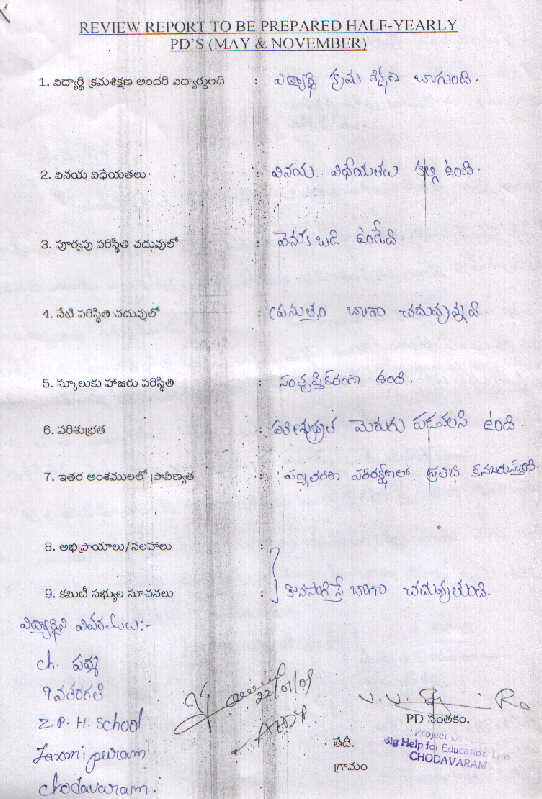 REVIEW REPORT TO BE PREPARED HALF-YEARLY
PD'S (MAY & NOVEMBER)
1. విద్యార్థి క్రమశిక్షణ అందరి విద్యార్థులతో : విద్యార్థి క్రమ శిక్షణ బాగుంది.
2. వినయ విధేయతలు : వినయ విధేయతలు కల్గి ఉంది.
3. పూర్వపు పరిస్థితి చదువులో : వెనుకబడి ఉండేది
4. నేటి పరిస్థితి చదువులో : ప్రస్తుతం బాగా చదువుచున్నది
5. స్కూలుకు హాజరు పరిస్థితి : సంతృప్తికరంగా ఉంది.
6. పరిశుభ్రత : పరిశుభ్రత మెరుగు పడవలసి ఉంది.
7. ఇతర అంశములలో ప్రావీణ్యత :
8. అభిప్రాయాలు/సలహాలు :
9. కమిటీ సభ్యుల సూచనలు : కొనసాగిస్తే బాగా చదువుతుంది.
విద్యార్థిని వివరములు:-
ch. పద్మ
9వతరగతి
Z.P.H. School
Laxmipuram
Chodavaram.
22/01/09
PD సంతకం.
Big Help for Education
CHODAVARAM
తేది.
గ్రామం